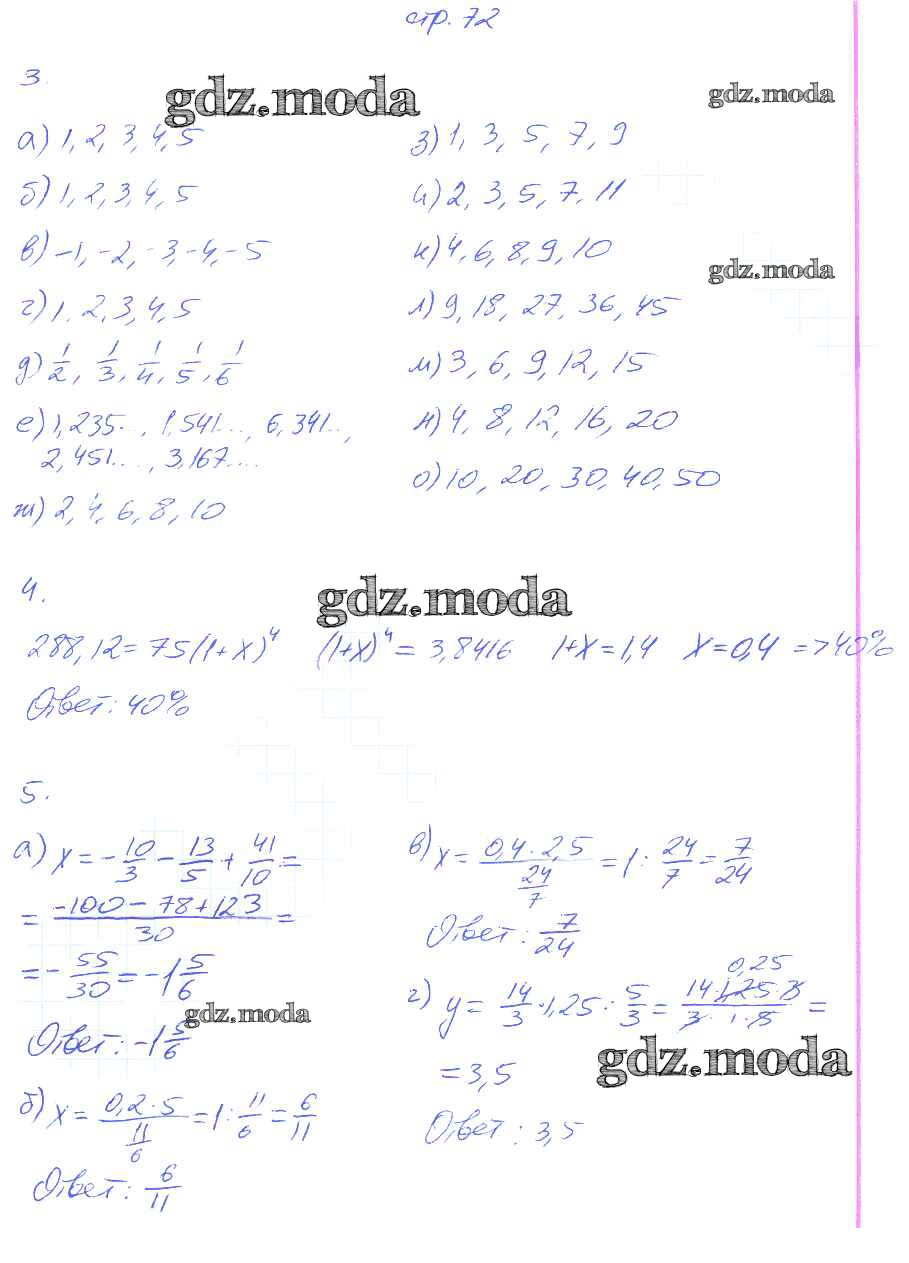 стр. 72
3.
gdz.moda
gdz.moda
а) 1, 2, 3, 4, 5
б) 1, 2, 3, 4, 5
в) -1, -2, -3, -4, -5
г) 1, 2, 3, 4, 5
д) 1/2, 1/3, 1/4, 1/5, 1/6
е) 1,235..., 1,541..., 6,341...,
2,451..., 3,167...
ж) 2, 4, 6, 8, 10
з) 1, 3, 5, 7, 9
и) 2, 3, 5, 7, 11
к) 4, 6, 8, 9, 10
gdz.moda
л) 9, 18, 27, 36, 45
м) 3, 6, 9, 12, 15
н) 4, 8, 12, 16, 20
о) 10, 20, 30, 40, 50
4.
gdz.moda
288,12 = 75(1+x)^4 (1+x)^4 = 3,8416 1+x = 1,4 x = 0,4 => 40%
Ответ: 40%
5.
а) x = - 10/3 - 13/5 + 41/10 =
= (-100 - 78 + 123)/30 =
= - 55/30 = -1 5/6
gdz.moda
Ответ: -1 5/6
б) x = (0,2 · 5)/(11/6) = 1 : 11/6 = 6/11
Ответ: 6/11
в) x = (0,4 · 2,5)/(24/7) = 1 : 24/7 = 7/24
Ответ: 7/24
0,25
г) y = 14/3 · 1,25 : 5/3 = (14 · 1,25 · 3)/(3 · 1 · 5) =
= 3,5
gdz.moda
Ответ: 3,5